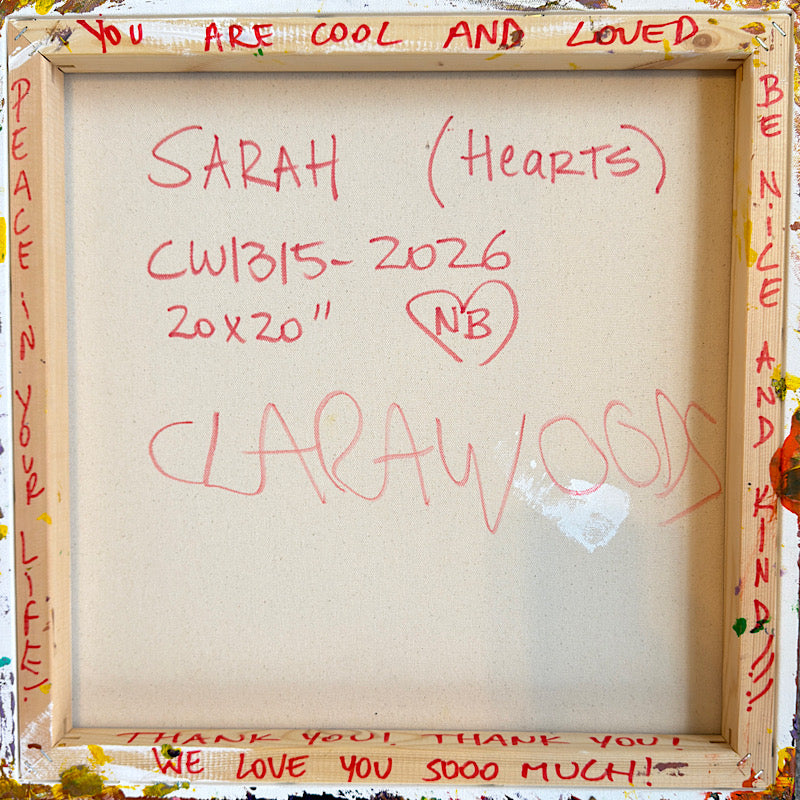 YOU ARE COOL AND LOVED
PEACE iN YOUR LiFE!!
BE NiCE AND KIND!!!
SARAH (HeARTS)
CW1315-2026
20x20" NB
CLARAWOODS
THANK YOU! THANK YOU!
WE LOVE YOU SOOO MUCH!